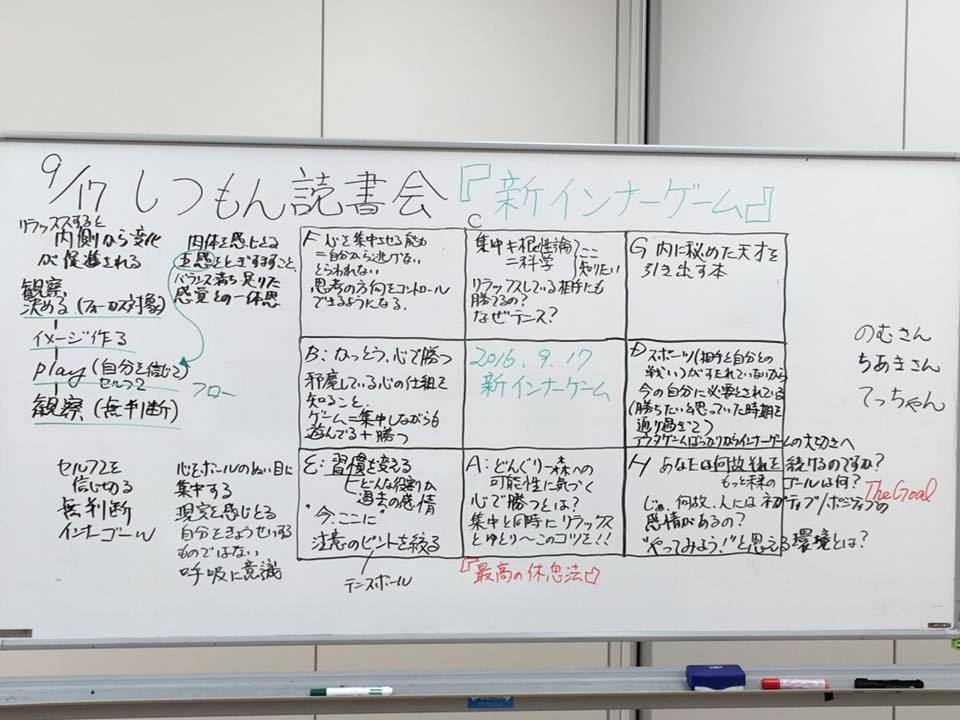 9/17 しつもん読書会『新インナーゲーム』
リラックスすると
内側から変化
が促進される
観察
決める(フォーカス対象)
イメージ作る
play (自分を信じて)
セルフ2
フロー
観察(無判断)
肉体を感じとる
五感をとぎすますこと、
バランス 満ち足りた
感覚との一体感
セルフ2を
信じ切る
無判断
インナーゴール
心をボールのぬい目に
集中する
現実を感じとる
自分をきょうせいする
ものではない
呼吸に意識
F 心を集中させる能力
=自分から逃げない
とらわれない
思考の方向をコントロール
できるようになる。
C
集中≠根性論
=科学
ここ
知りたい
リラックスしている相手にも
勝てるの?
なぜテニス?
G 内に秘めた天才を
引き出す本
B: なっとう、心で勝つ
邪魔している心の仕組を
知ること。
ゲーム=集中しながらも
遊んでる+勝つ
2016.9.17
新インナーゲーム
D スポーツ(相手と自分との
戦い)がすきれていないから
今の自分に必要とされている
(勝ちたいと思っていた時期を
通り過ぎて)
アウターゲームばっかりからインナーゲームの大切さへ
E: 習慣を変える
どんな役割か
過去の感情
"今、ここに"
注意のピントを絞る
テニスボール
A: どんぐり→森への
可能性に気づく
心で勝つとは?
集中と同時にリラックス
とゆとり〜このコツを!!
『最高の休息法』
H あなたは何故それを続けるのですか?
もっと未来のゴールは何?
The Goal
じゃあ何故、人にはネガティブ/ポジティブの
感情があるの?
"やってみよう!"と思える環境とは?
のむさん
ちあきさん
てっちゃん